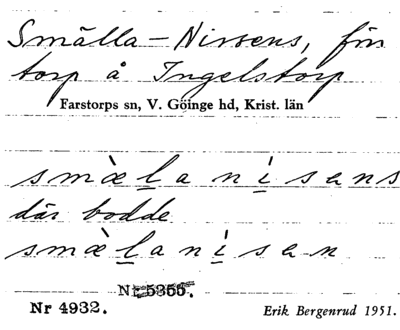 Smälla-Nissens, förs
torp å Ingelstorp
Farstorps sn, V. Göinge hd, Krist. län
smæ̀l̲a ni̲̇sens
där bodde
smæ̀l̲a ni̲̇sen
Nr 5355.
Nr 4932.
Erik Bergenrud 1951.